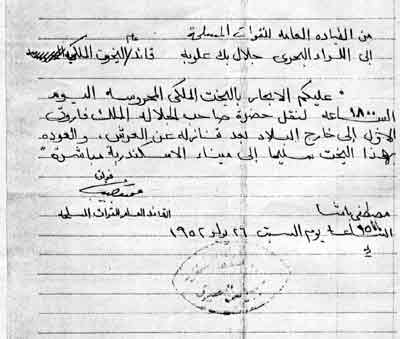 من القيادة العامة للقوات المسلحة
إلى اللواء البحرى جلال بك علوبه قائد عام اليخوت الملكية
" عليكم الابحار باليخت الملكى المحروسه اليوم
الساعه ١٨٠٠ لنقل حضرة صاحب الجلاله الملك فاروق
الاول إلى خارج البلاد بعد تنازله عن العرش، والعوده
بهذا اليخت سليما إلى ميناء الاسكندرية مباشرة "
القائد العام للقوات المسلحه
مصطفى باشا
الساعة يوم السبت ٢٦ يوليو ١٩٥٢